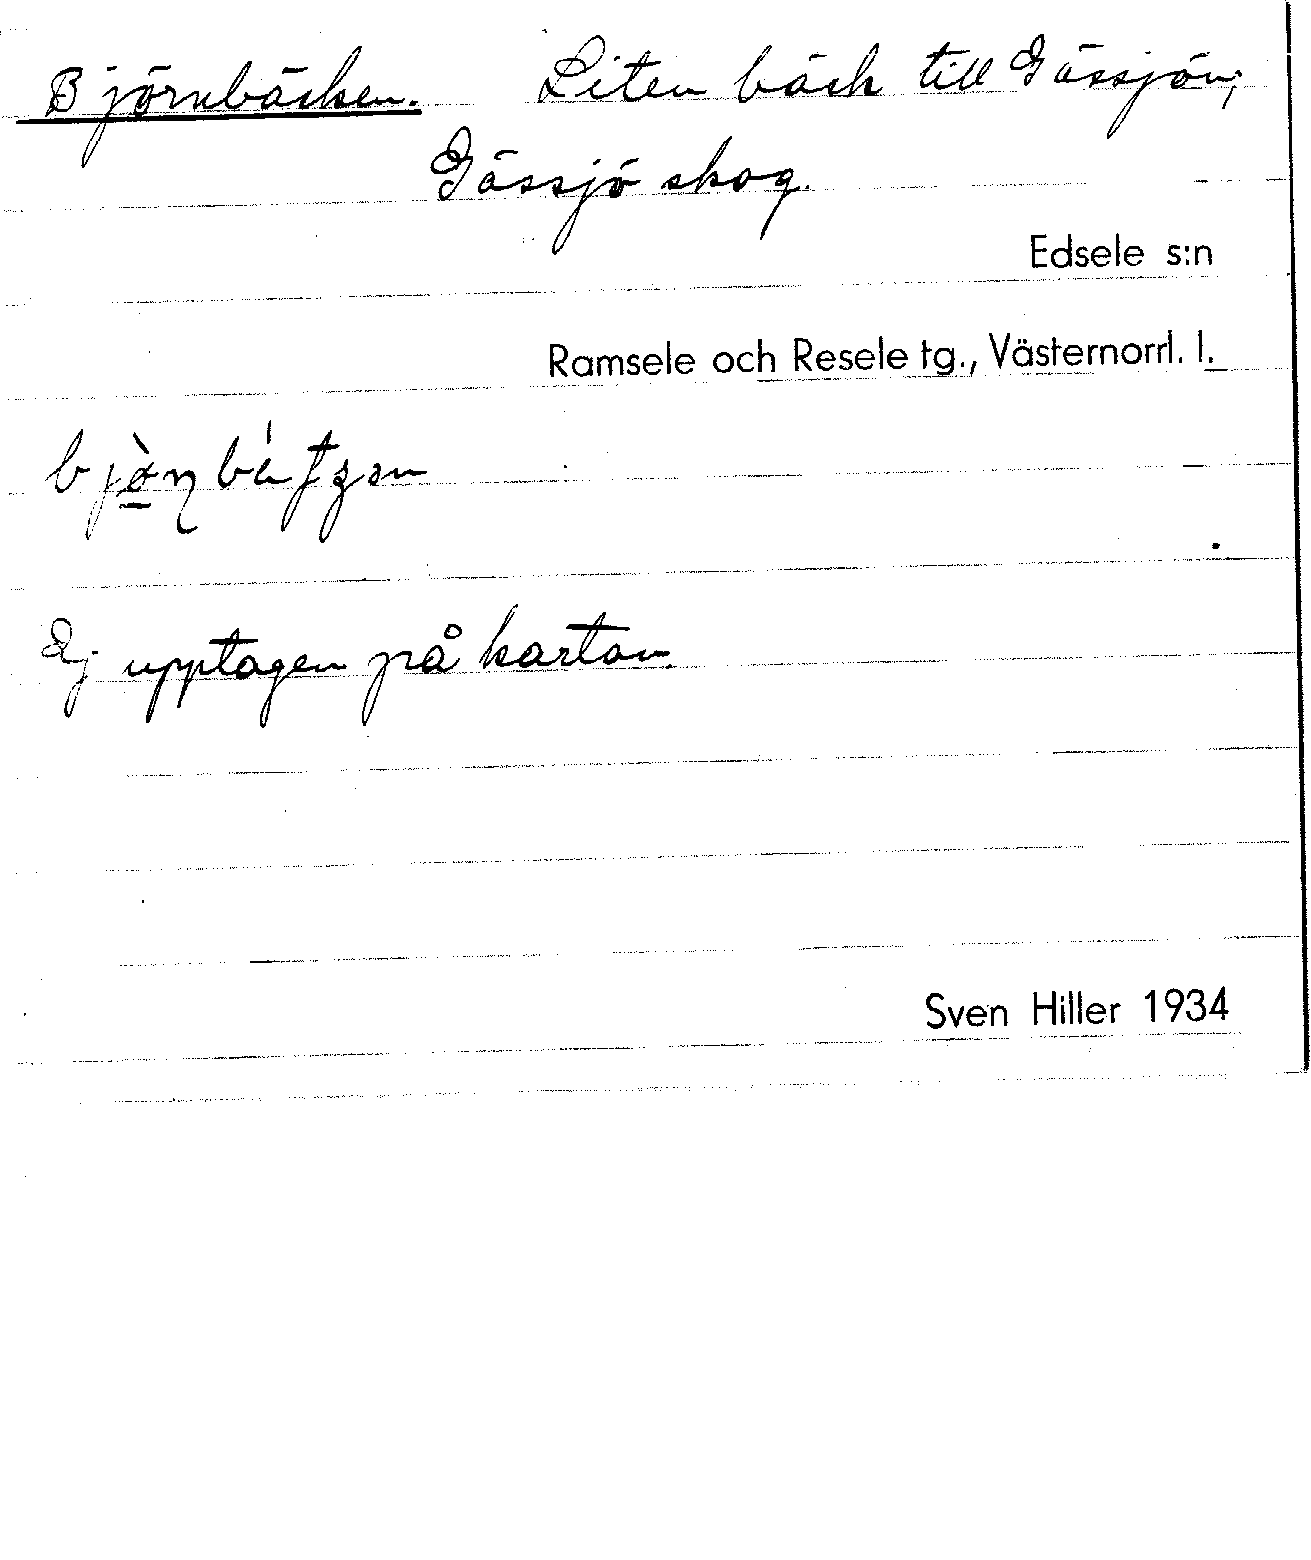 Björnbäcken. Liten bäck till Gåssjön;
Gåssjö skog.
Edsele s:n
Ramsele och Resele tg., Västernorrl. l.
Ej upptagen på kartan.
Sven Hiller 1934